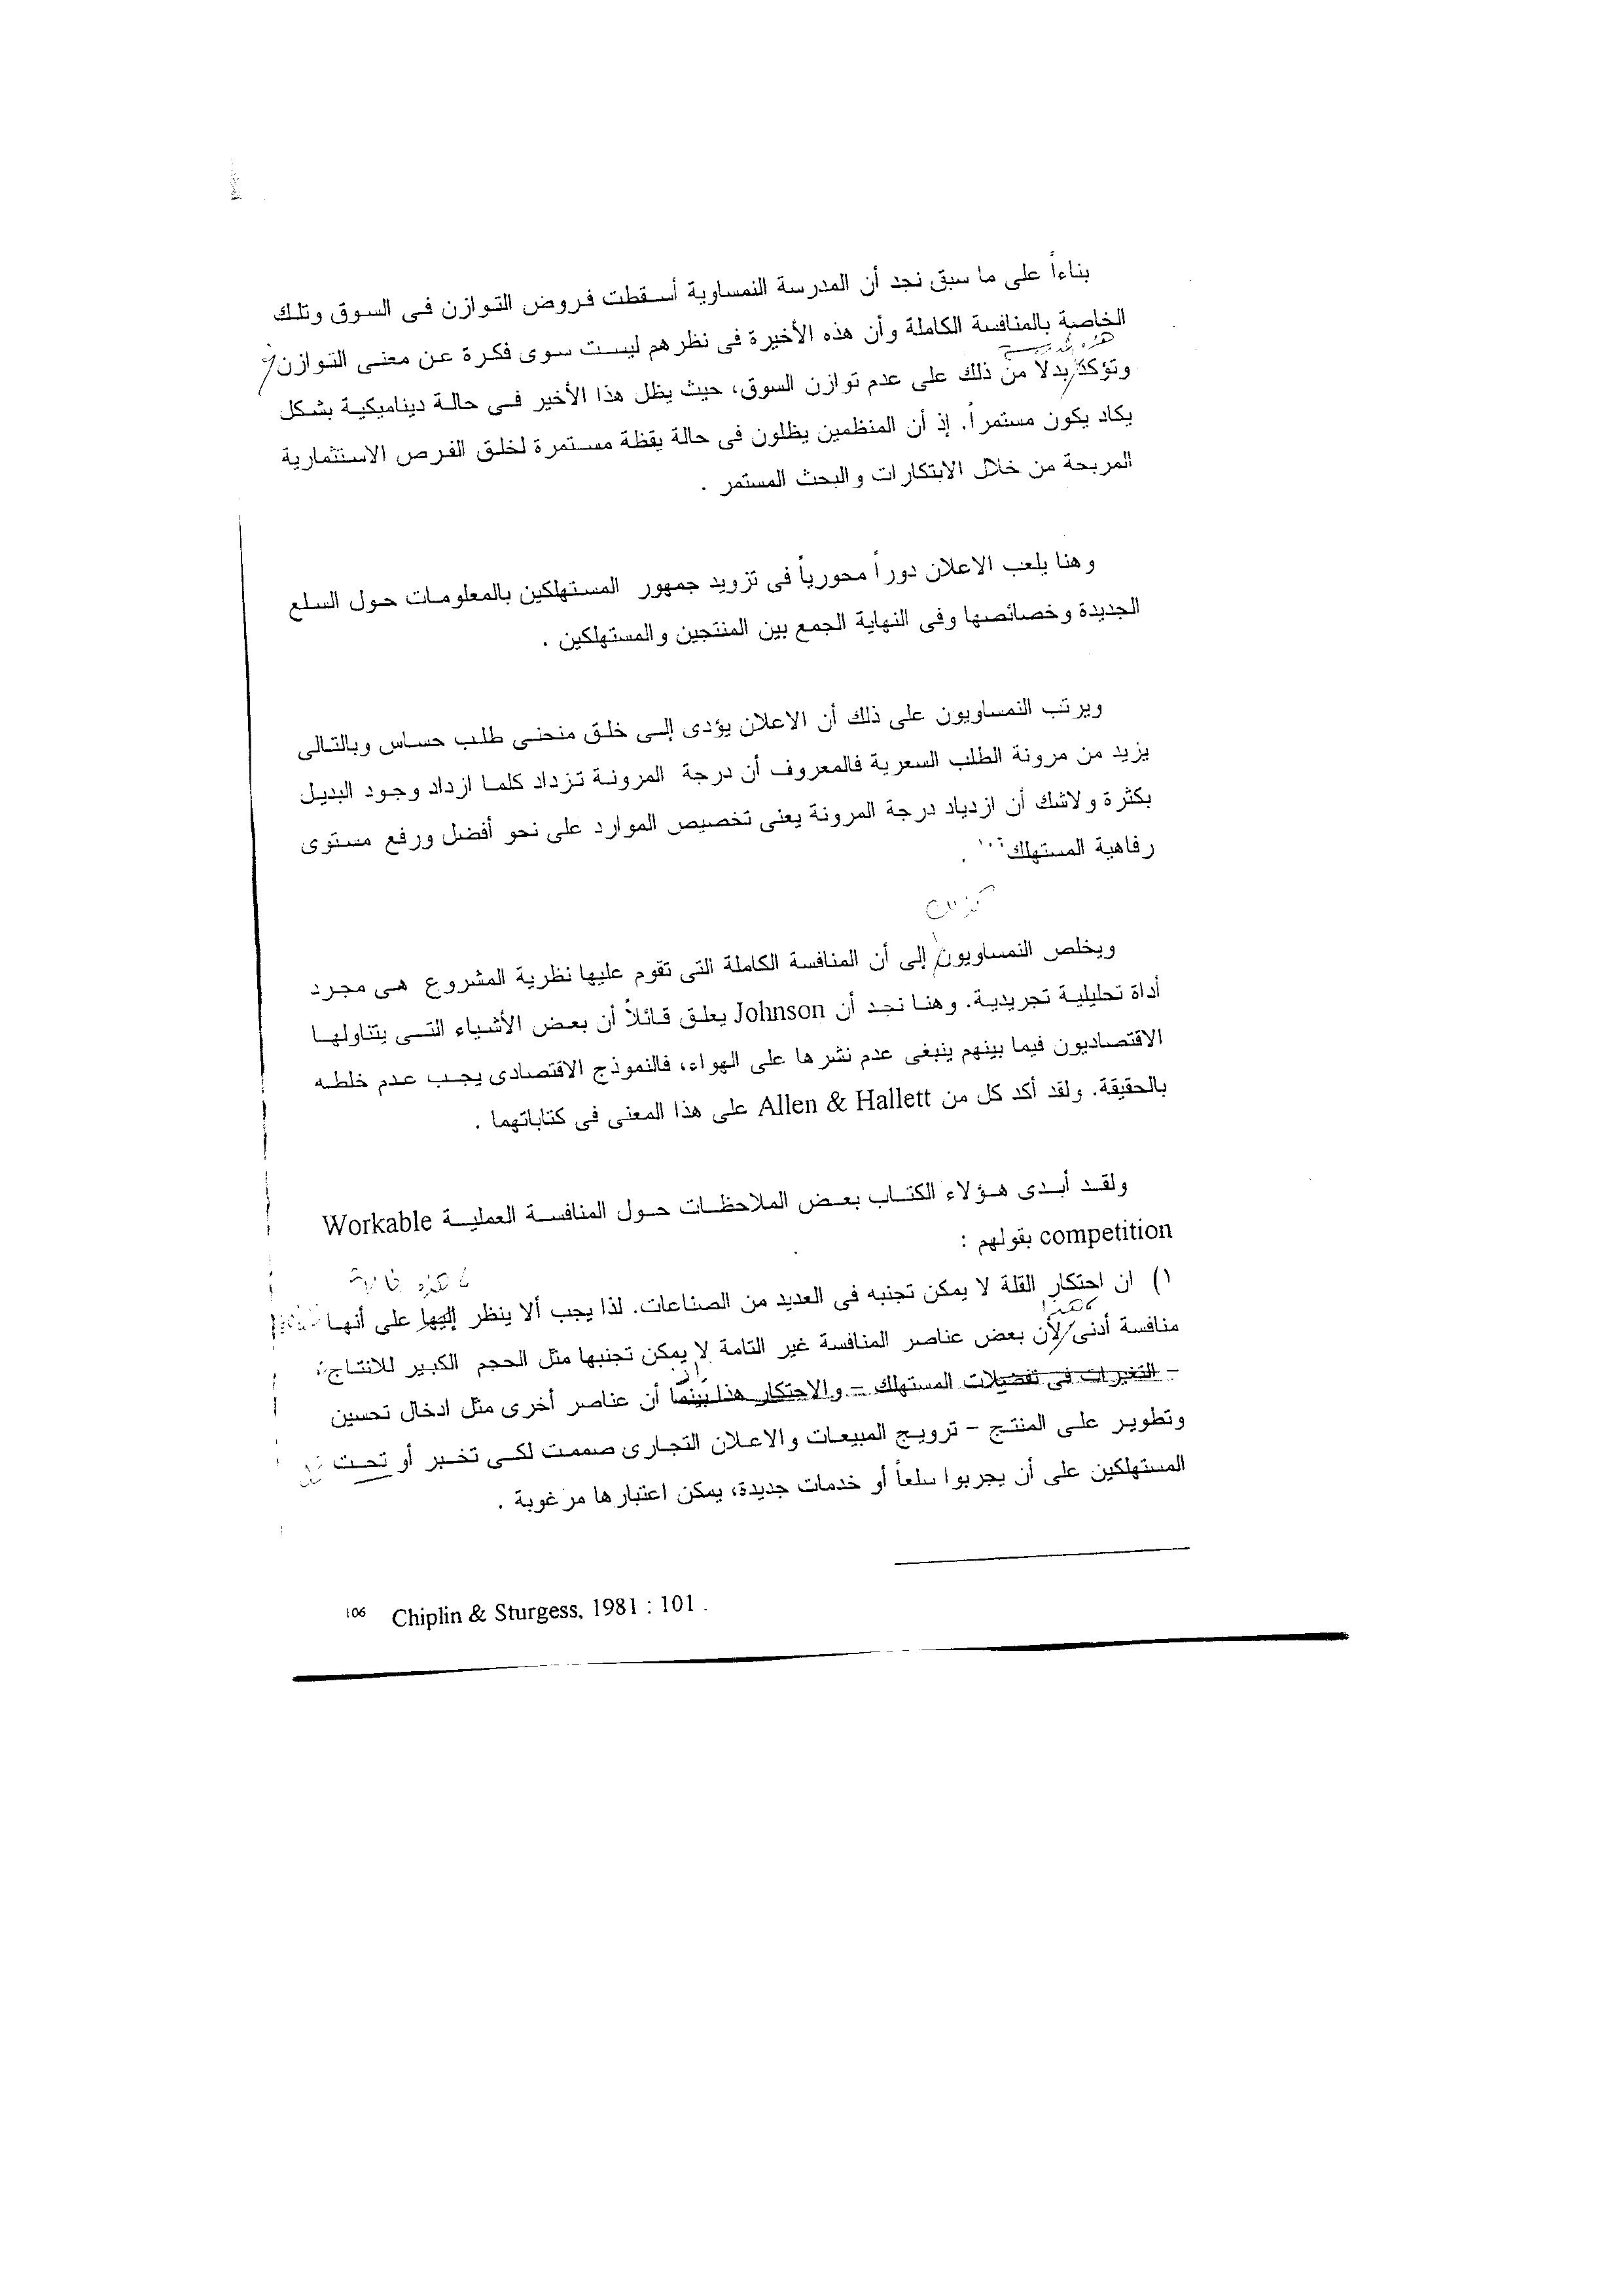 بناءاً على ما سبق نجد أن المدرسة النمساوية أسقطت فروض التوازن فى السوق وتلك
الخاصة بالمنافسة الكاملة وأن هذه الأخيرة فى نظرهم ليست سوى فكرة عن معنى التوازن
وتؤكد بدلاً من ذلك على عدم توازن السوق، حيث يظل هذا الأخير فى حالة ديناميكية بشكل
يكاد يكون مستمراً. إذ أن المنظمين يظلون فى حالة يقظة مستمرة لخلق الفرص الاستثمارية
المربحة من خلال الابتكارات والبحث المستمر .
وهنا يلعب الاعلان دوراً محورياً فى تزويد جمهور المستهلكين بالمعلومات حول السلع
الجديدة وخصائصها وفى النهاية الجمع بين المنتجين والمستهلكين .
ويرتب النمساويون على ذلك أن الاعلان يؤدى إلى خلق منحنى طلب حساس وبالتالى
يزيد من مرونة الطلب السعرية فالمعروف أن درجة المرونة تزداد كلما ازداد وجود البديل
بكثرة ولاشك أن ازدياد درجة المرونة يعنى تخصيص الموارد على نحو أفضل ورفع مستوى
رفاهية المستهلك .
ويخلص النمساويون إلى أن المنافسة الكاملة التى تقوم عليها نظرية المشروع هى مجرد
أداة تحليلية تجريدية. وهنا نجد أن Johnson يعلق قائلاً أن بعض الأشياء التى يتناولها
الاقتصاديون فيما بينهم ينبغى عدم نشرها على الهواء، فالنموذج الاقتصادى يجب عدم خلطه
بالحقيقة. ولقد أكد كل من Allen & Hallett على هذا المعنى فى كتاباتهما .
ولقد أبدى هؤلاء الكتاب بعض الملاحظات حول المنافسة العملية Workable
competition بقولهم :
١) ان احتكار القلة لا يمكن تجنبه فى العديد من الصناعات. لذا يجب ألا ينظر إليها على أنها
منافسة أدنى لأن بعض عناصر المنافسة غير التامة لا يمكن تجنبها مثل الحجم الكبير للانتاج
– التغيرات فى تفضيلات المستهلك – والاحتكار هذا بينما أن عناصر أخرى مثل ادخال تحسين
وتطوير على المنتج – ترويج المبيعات والاعلان التجارى صممت لكى تخبر أو تحث
المستهلكين على أن يجربوا سلعاً أو خدمات جديدة، يمكن اعتبارها مرغوبة .
106 Chiplin & Sturgess, 1981 : 101 .